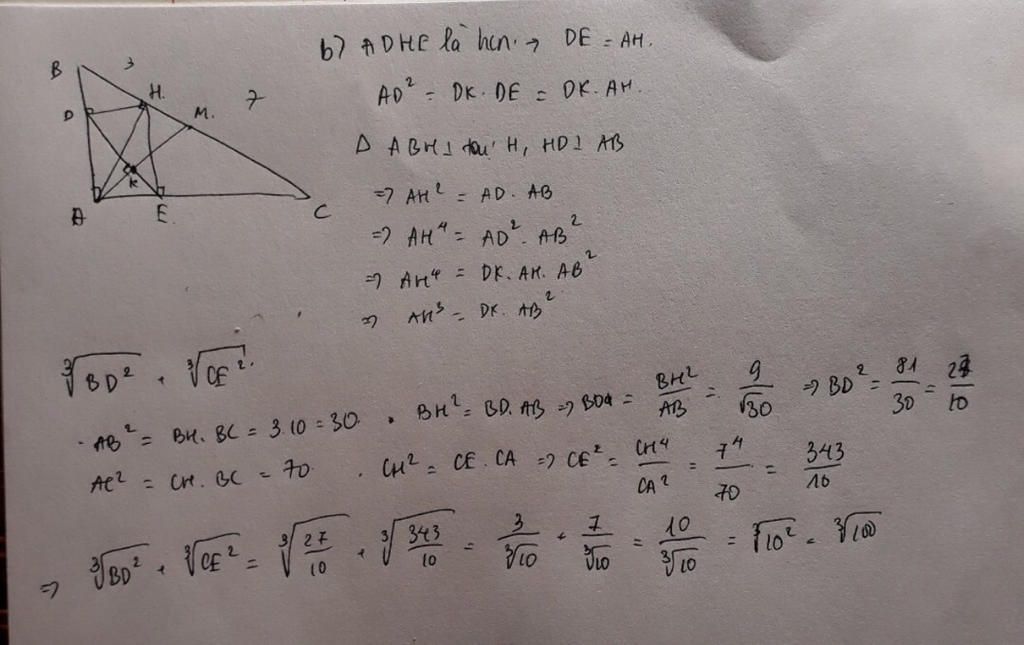 B 3
H.
7
D
M.
K
A E. C
b) ADHE là hcn. → DE = AH.
AD² = DK. DE = DK. AH.
Δ ABH ⊥ tại H, HD ⊥ AB
=> AH² = AD. AB
=> AH⁴ = AD². AB²
=> AH⁴ = DK. AH. AB²
=> AH³ = DK. AB²
∛BD² + ∛CE².
· AB² = BH. BC = 3.10 = 30. · BH² = BD. AB => BD = BH²/AB = 9/√30 => BD² = 81/30 = 27/10
AC² = CH. BC = 70. · CH² = CE. CA => CE² = CH⁴/CA² = 7⁴/70 = 343/10
=> ∛BD² + ∛CE² = ∛(27/10) + ∛(343/10) = 3/∛10 + 7/∛10 = 10/∛10 = ∛10² = ∛100